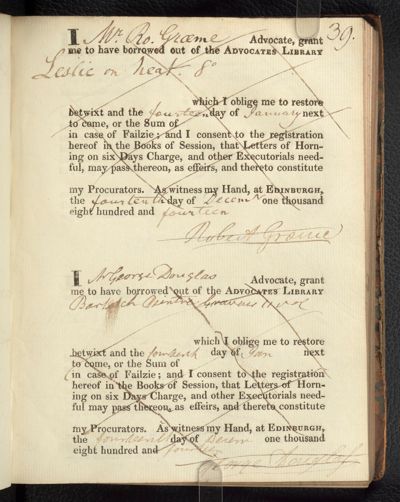 39.
I Mr. Ro. Græme Advocate, grant
me to have borrowed out of the ADVOCATES LIBRARY
Leslie on heat. 8o
which I oblige me to restore
betwixt and the fourteen day of January next
to come, or the Sum of
in case of Failzie; and I consent to the registration
hereof in the Books of Session, that Letters of Horn-
ing on six Days Charge, and other Executorials need-
ful, may pass thereon, as effeirs, and thereto constitute
my Procurators. As witness my Hand, at EDINBURGH,
the fourteenth day of Decemr. one thousand
eight hundred and fourteen
Robert Græme
I Mr George Douglas Advocate, grant
me to have borrowed out of the ADVOCATES LIBRARY
Bartsch Peintre Graveur
which I oblige me to restore
betwixt and the fourteenth day of Jan next
to come, or the Sum of
in case of Failzie; and I consent to the registration
hereof in the Books of Session, that Letters of Horn-
ing on six Days Charge, and other Executorials need-
ful may pass thereon, as effeirs, and thereto constitute
my Procurators. As witness my Hand, at EDINBURGH,
the fourteenth day of Decem one thousand
eight hundred and fourteen
George Douglas